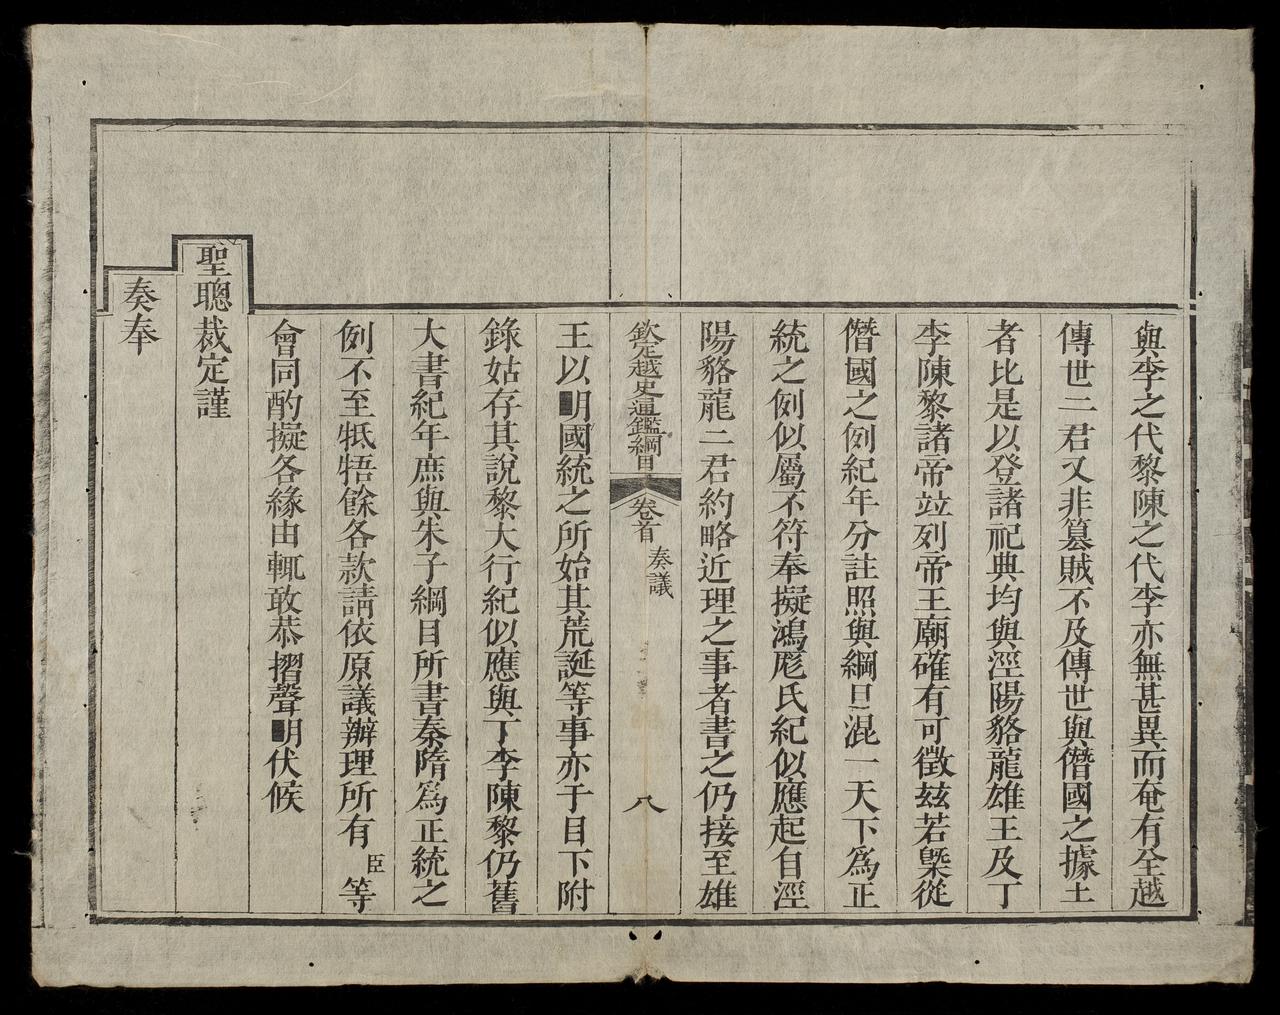 與李之代黎陳之代李亦無甚異而奄有全越
傳世二君又非篡賊不及傳世與僭國之據土
者比是以登諸祀典均與涇陽貉龍雄王及丁
李陳黎諸帝竝列帝王廟確有可徵玆若槩從
僭國之例紀年分註照與綱目混一天下爲正
統之例似屬不符奉擬鴻厖氏紀似應起自涇
陽貉龍二君約略近理之事者書之仍接至雄
欽定越史通鑑綱目 卷首 奏議 八
王以明國統之所始其荒誕等事亦于目下附
錄姑存其說黎大行紀似應與丁李陳黎仍舊
大書紀年庶與朱子綱目所書秦隋爲正統之
例不至牴牾餘各款請依原議辦理所有臣等
會同酌擬各緣由輒敢恭摺聲明伏候
聖聰裁定謹
奏奉